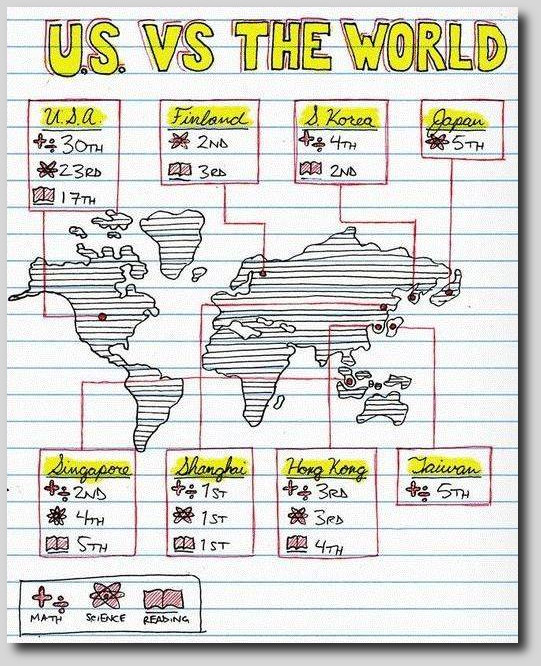 U.S. VS THE WORLD
U.S.A.
30TH
23RD
17TH
Finland
2ND
3RD
S. Korea
4TH
2ND
Japan
5TH
Singapore
2ND
4TH
5TH
Shanghai
1ST
1ST
1ST
Hong Kong
3RD
3RD
4TH
Taiwan
5TH
MATH
SCIENCE
READING